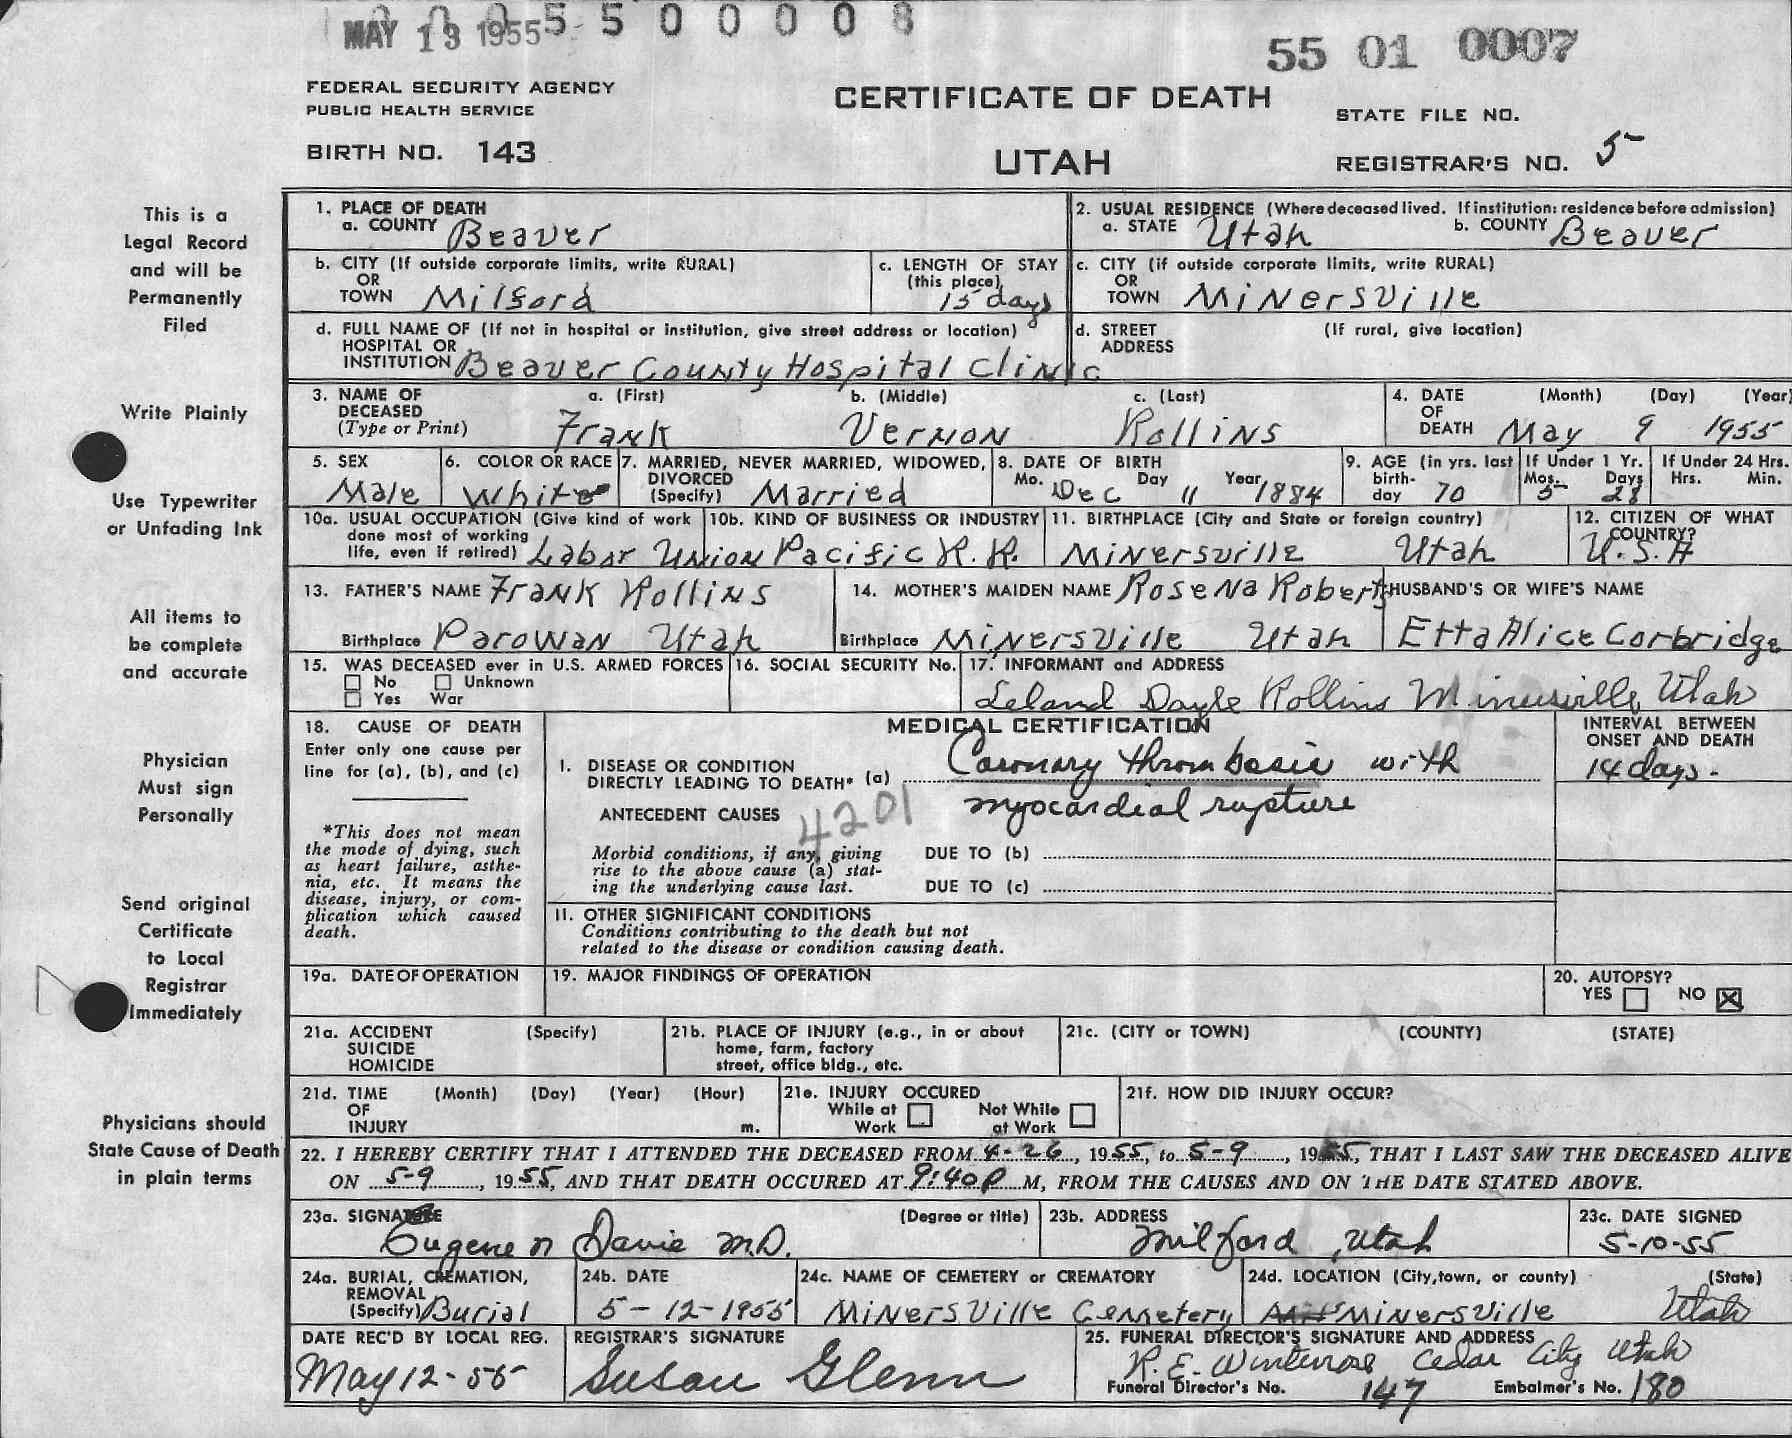 MAY 13 1955
5 5 0 0 0 0 8
55 01 0007
FEDERAL SECURITY AGENCY
PUBLIC HEALTH SERVICE
BIRTH NO. 143
CERTIFICATE OF DEATH
UTAH
STATE FILE NO.
REGISTRAR'S NO. 5
This is a
Legal Record
and will be
Permanently
Filed
Write Plainly
Use Typewriter
or Unfading Ink
All items to
be complete
and accurate
Physician
Must sign
Personally
Send original
Certificate
to Local
Registrar
Immediately
Physicians should
State Cause of Death
in plain terms
1. PLACE OF DEATH
a. COUNTY Beaver
2. USUAL RESIDENCE (Where deceased lived. If institution: residence before admission)
a. STATE Utah b. COUNTY Beaver
b. CITY (If outside corporate limits, write RURAL)
OR
TOWN Milford
c. LENGTH OF STAY
(this place)
15 days
c. CITY (if outside corporate limits, write RURAL)
OR
TOWN Minersville
d. FULL NAME OF (If not in hospital or institution, give street address or location)
HOSPITAL OR
INSTITUTION Beaver County Hospital Clinic
d. STREET (If rural, give location)
ADDRESS
3. NAME OF a. (First) b. (Middle) c. (Last)
DECEASED
(Type or Print) Frank Vernon Rollins
4. DATE (Month) (Day) (Year)
OF
DEATH May 9 1955
5. SEX
Male
6. COLOR OR RACE
White
7. MARRIED, NEVER MARRIED, WIDOWED,
DIVORCED
(Specify) Married
8. DATE OF BIRTH
Mo. Dec Day 11 Year 1884
9. AGE (in yrs. last
birth-
day 70
If Under 1 Yr.
Mos. Days
5 28
If Under 24 Hrs.
Hrs. Min.
10a. USUAL OCCUPATION (Give kind of work
done most of working
life, even if retired) Labor
10b. KIND OF BUSINESS OR INDUSTRY
Union Pacific R.R.
11. BIRTHPLACE (City and State or foreign country)
Minersville Utah
12. CITIZEN OF WHAT
COUNTRY?
U.S.A
13. FATHER'S NAME Frank Rollins
Birthplace Parowan Utah
14. MOTHER'S MAIDEN NAME Rosena Roberts
Birthplace Minersville Utah
HUSBAND'S OR WIFE'S NAME
Etta Alice Corbridge
15. WAS DECEASED ever in U.S. ARMED FORCES
No Unknown
Yes War
16. SOCIAL SECURITY No.
17. INFORMANT and ADDRESS
Leland Doyle Rollins Minersville, Utah
18. CAUSE OF DEATH
Enter only one cause per
line for (a), (b), and (c)
*This does not mean
the mode of dying, such
as heart failure, asthe-
nia, etc. It means the
disease, injury, or com-
plication which caused
death.
MEDICAL CERTIFICATION
I. DISEASE OR CONDITION
DIRECTLY LEADING TO DEATH* (a) Coronary thrombosis with
myocardial rupture
ANTECEDENT CAUSES
4201
Morbid conditions, if any, giving
rise to the above cause (a) stat-
ing the underlying cause last.
DUE TO (b)
DUE TO (c)
INTERVAL BETWEEN
ONSET AND DEATH
14 days.
II. OTHER SIGNIFICANT CONDITIONS
Conditions contributing to the death but not
related to the disease or condition causing death.
19a. DATE OF OPERATION
19. MAJOR FINDINGS OF OPERATION
20. AUTOPSY?
YES NO X
21a. ACCIDENT (Specify)
SUICIDE
HOMICIDE
21b. PLACE OF INJURY (e.g., in or about
home, farm, factory
street, office bldg., etc.
21c. (CITY or TOWN) (COUNTY) (STATE)
21d. TIME (Month) (Day) (Year) (Hour)
OF
INJURY m.
21e. INJURY OCCURED
While at Not While
Work at Work
21f. HOW DID INJURY OCCUR?
22. I HEREBY CERTIFY THAT I ATTENDED THE DECEASED FROM 4-26, 1955, to 5-9, 1955, THAT I LAST SAW THE DECEASED ALIVE
ON 5-9, 1955, AND THAT DEATH OCCURED AT 9:40p M, FROM THE CAUSES AND ON THE DATE STATED ABOVE.
23a. SIGNATURE (Degree or title)
Eugene N Davie M.D.
23b. ADDRESS
Milford, Utah
23c. DATE SIGNED
5-10-55
24a. BURIAL, CREMATION,
REMOVAL
(Specify) Burial
24b. DATE
5-12-1955
24c. NAME OF CEMETERY or CREMATORY
Minersville Cemetery
24d. LOCATION (City, town, or county) (State)
Minersville Utah
DATE REC'D BY LOCAL REG.
May 12-55
REGISTRAR'S SIGNATURE
Susan Glenn
25. FUNERAL DIRECTOR'S SIGNATURE AND ADDRESS
R.E. Winterose Cedar City Utah
Funeral Director's No. 147 Embalmer's No. 180